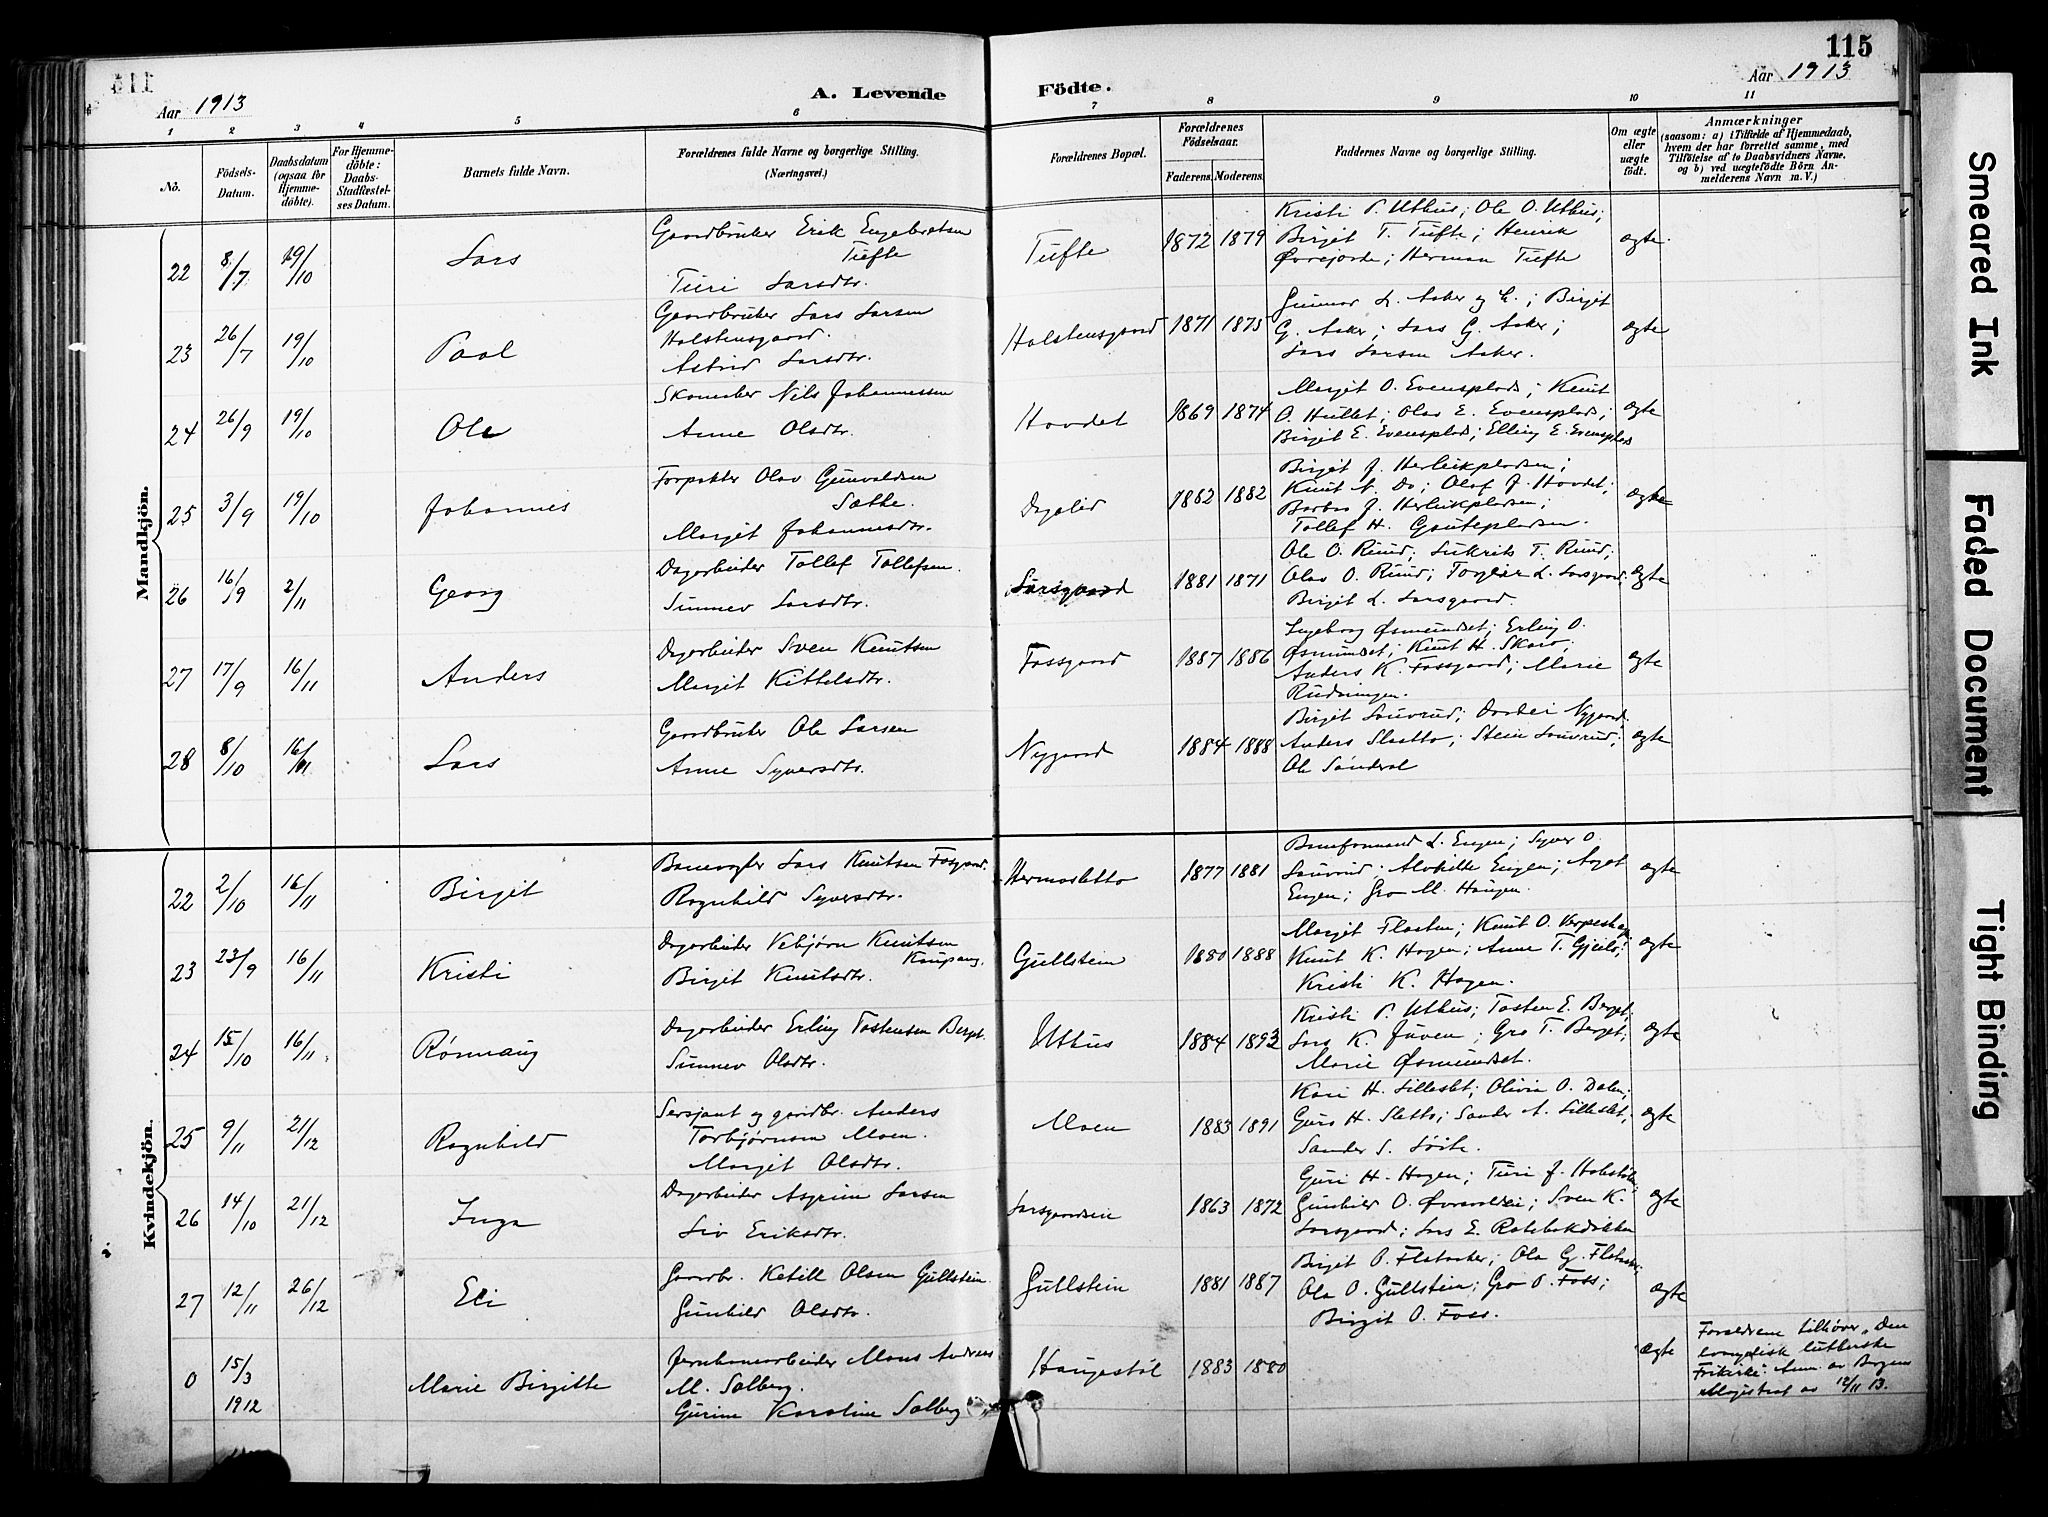 115
Aar 1913
A. Levende
Födte.
Aar 1913
1 2 3 4 5 6 7 8 9 10 11
No.
Födsels-
Datum.
Daabsdatum
(ogsaa for
Hjemme-
döbte).
For Hjemme-
döbte:
Daabs-
Stadfæstel-
ses Datum.
Barnets fulde Navn.
Forældrenes fulde Navne og borgerlige Stilling.
(Næringsvei.)
Forældrenes Bopæl.
Forældrenes
Födselsaar.
Faderens. Moderens.
Faddernes Navne og borgerlige Stilling.
Om ægte
eller
uægte
födt.
Anmærkninger
(saasom: a) i Tilfælde af Hjemmedaab,
hvem der har forrettet samme, med
Tilföielse af to Daabsvidners Navne,
og b) ved uægtefödte Börn An-
melderens Navn m. V.)
Mandkjön.
22 8/7 19/10 Lars
Gaardbruker Erik Engebretsen
Tufte
Turi Larsdtr.
Tufte 1872 1879
Kristi P. Uthus; Ole O. Uthus;
Birgit T. Tufte; Henrik
Øvrejorde; Herman Tufte
ægte
23 26/7 19/10 Paal
Gaardbruker Lars Larsen
Holstensgaard.
Astrid Larsdtr.
Holstensgaard 1871 1875
Gunnar L. Aaker og h.; Birgit
G. Aaker; Lars G. Aaker;
Lars Larsen Aaker.
ægte
24 26/9 19/10 Ole
Skomaker Nils Johannessen
Anne Olsdtr.
Hovdet 1869 1874
Margit O. Evensplads; Knut
O. Hullet; Olav E. Evensplads;
Birgit E. Evensplads; Elling E. Evensplads
ægte
25 3/9 19/10 Johannes
Forpakter Olav Gunvaldsen
Sæthe.
Margit Johannesdtr.
Dagalid 1882 1882
Birgit J. Herleikpladsen;
Knut N. Do; Olaf J. Hovdet;
Barbro J. Herleikpladsen;
Tollef H. Gautepladsen.
ægte
26 16/9 2/11 Georg
Dagarbeider Tollef Tollefsen.
Sunnev Larsdtr.
Larsgaard 1881 1871
Ole O. Ruud; T. Ruud;
Olav O. Ruud; L. Larsgaard
Birgit L. Larsgaard.
ægte
27 17/9 16/11 Anders
Dagarbeider Sven Knutsen
Margit Kittelsdtr.
Fossgaard 1887 1886
Ingeborg Øsmundset; Erling O.
Øsmundset; Knut H. Skaro;
Anders K. Fossgaard; Marie
Rudningen.
ægte
28 8/10 16/11 Lars
Gaardbruker Ole Larsen
Anne Syversdtr.
Nygaard 1884 1888
Birgit Lauvrud; Nygaard
Anders Slaatto; Stein Lauvrud;
Ole Sønderal
ægte
Kvindekjön.
22 2/10 16/11 Birgit
Banevogter Lars Knutsen Fosgaard.
Ragnhild Syversdtr.
Hermosletto 1877 1881
Baneformand L. Engen; Syver O.
Lauvrud; Engen; Aagot
Engen; Gro M. Haugen.
ægte
23 23/9 16/11 Kristi
Dagarbeider Vebjørn Knutsen
Kaupang.
Birgit Knutsdtr.
Gullstein 1880 1888
Margit Flaten; Knut O. Verpeskog
Knut K. Hagen; Anne T. Gjeilo;
Kristi K. Hagen.
ægte
24 15/10 16/11 Rønnaug
Dagarbeider Erling Tostensen Berget.
Sunnev Olsdtr.
Uthus 1884 1893
Kristi P. Uthus; Tosten E. Berget;
Lars K. Juven; Gro T. Berget;
Marie Øsmundset.
ægte
25 9/11 21/12 Ragnhild
Sersjant og gardbr. Anders
Torbjørnsen Moen.
Margit Olsdtr.
Moen 1883 1891
Kari H. Lilleslet; Olivia O. Dalen;
Guro H. Sletto; Sander A. Lilleslet;
Sander S.
ægte
26 14/10 21/12 Inga
Dagarbeider Asgrim Larsen
Liv Eriksdtr.
Larsgardseie 1863 1872
Guri H. Hagen; Turi J.
Gunhild O. Sven K.
Larsgaard; Lars E.
ægte
27 12/11 26/12 Eli
Gaardbr. Ketill Olsen Gullstein.
Gunhild Olsdtr.
Gullstein 1881 1887
Birgit O. Flataaker; Ola G. Flataaker;
Ola O. Gullstein; Gro O. Foss;
Birgit O. Foss.
ægte
0 15/3 1912 Marie Birgitte
Jernbanearbeider Mons Andreas
M. Solberg.
Gurine Karoline Solberg
Haugestøl 1883 1880
ægte
Forældrene tilhører „Den
evangelisk lutherske
Frikirke". Anm. av Bergens
Magistrat av 12/11 13.
Smeared Ink
Faded Document
Tight Binding